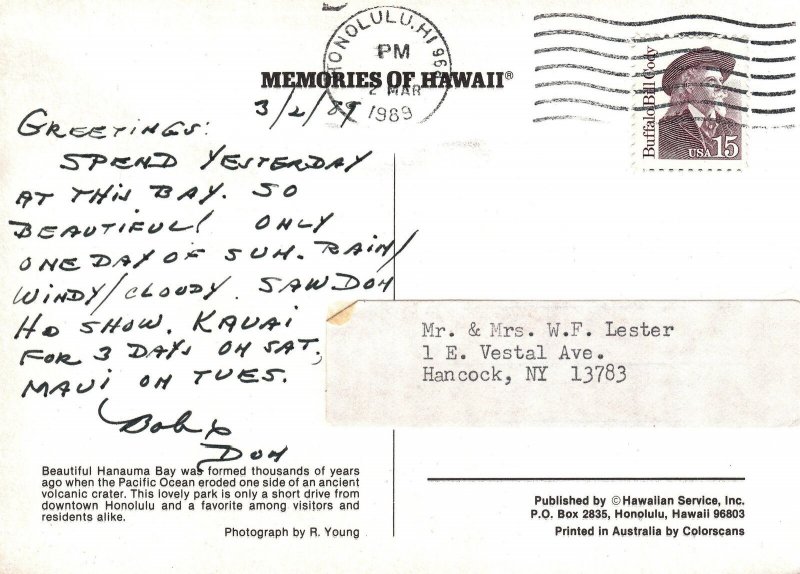 HONOLULU, HI 96
PM
2 MAR
1989
Buffalo Bill Cody
USA 15
MEMORIES OF HAWAII®
3/2/89
GREETINGS:
SPEND YESTERDAY
AT THIS BAY. SO
BEAUTIFUL! ONLY
ONE DAY OF SUN. RAIN/
WINDY/CLOUDY. SAW DON
HO SHOW. KAUAI
FOR 3 DAYS ON SAT,
MAUI ON TUES.
Bob &
DON
Mr. & Mrs. W.F. Lester
1 E. Vestal Ave.
Hancock, NY 13783
Beautiful Hanauma Bay was formed thousands of years
ago when the Pacific Ocean eroded one side of an ancient
volcanic crater. This lovely park is only a short drive from
downtown Honolulu and a favorite among visitors and
residents alike.
Photograph by R. Young
Published by © Hawaiian Service, Inc.
P.O. Box 2835, Honolulu, Hawaii 96803
Printed in Australia by Colorscans